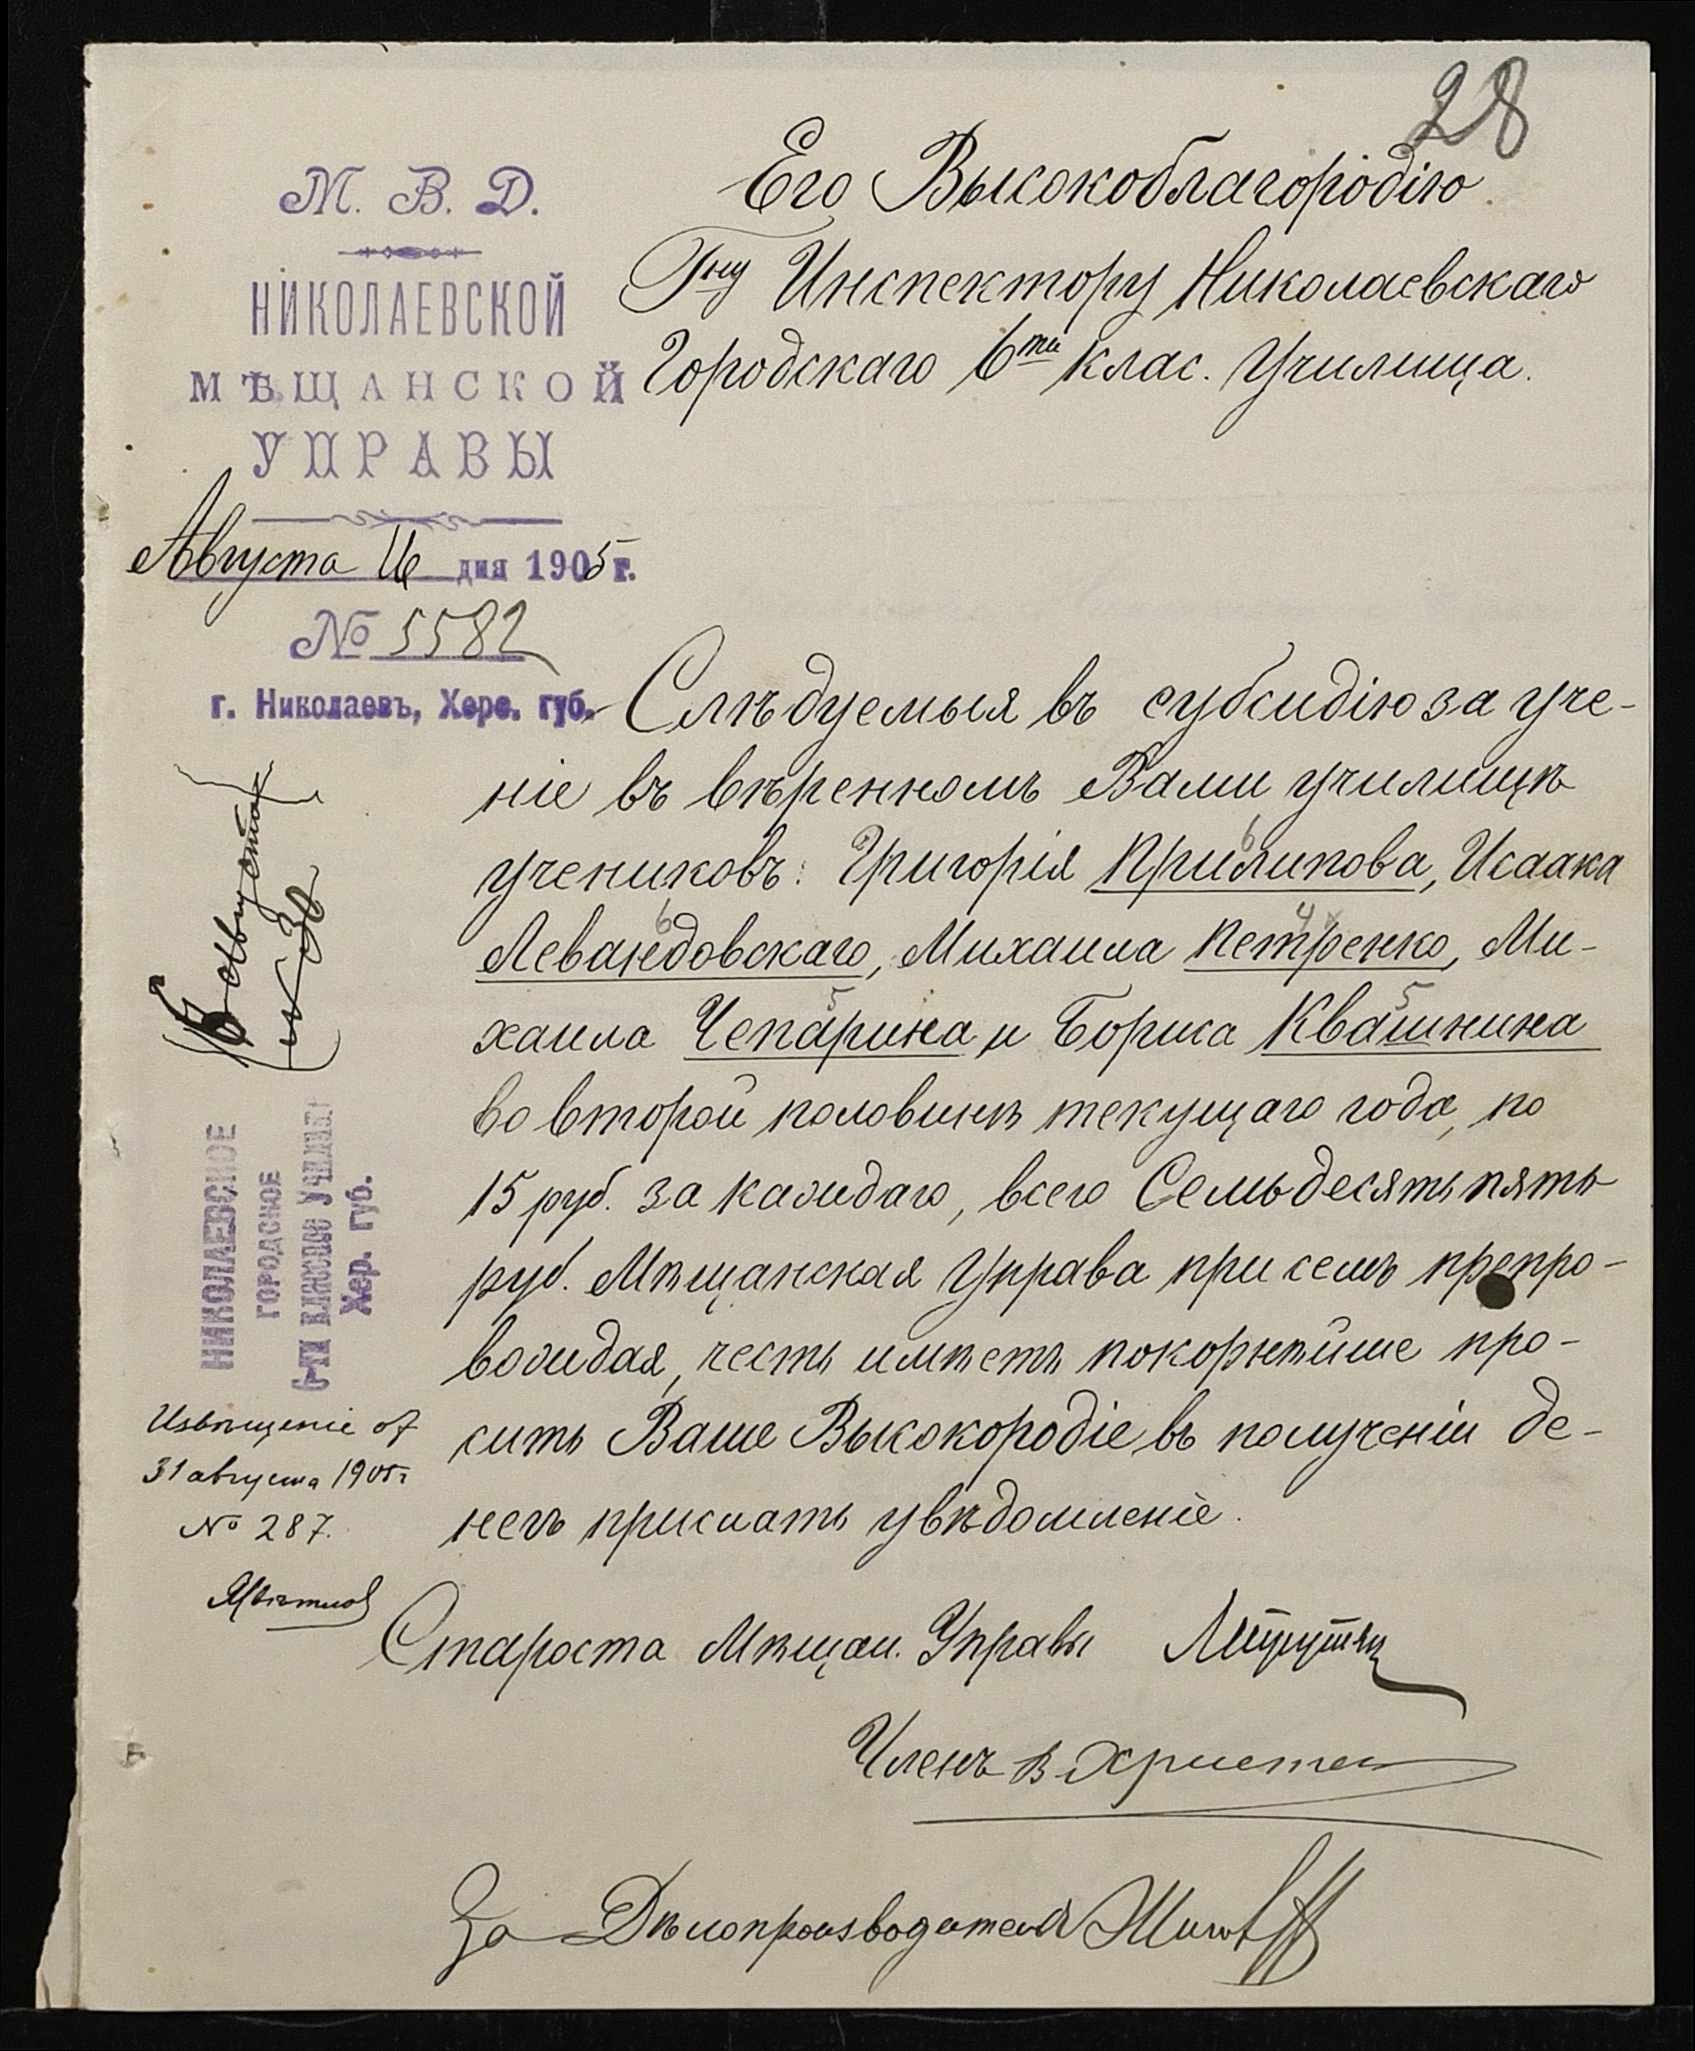 28
М. В. Д.
НИКОЛАЕВСКОЙ
МѢЩАНСКОЙ
УПРАВЫ
Августа 16 дня 1905 г.
№ 5582
г. Николаевъ, Херс. губ.
Его Высокоблагородію
Гну Инспектору Николаевскаго
Городскаго 6ти клас. Училища.
Слѣдуемыя въ субсидію за уче-
ніе въ ввѣренномъ Вами училищѣ
учениковъ: Григорія Прилипова, Исаака
Левандовскаго, Михаила Петренко, Ми-
хаила Чепарина и Бориса Квашнина
во второй половинѣ текущаго года, по
15 руб. за каждаго, всего Семьдесятъ пять
руб. Мѣщанская Управа при семъ препро-
вождая, честь имѣетъ покорнѣйше про-
сить Ваше Высокородіе въ полученіи де-
негъ прислать увѣдомленіе.
Староста Мѣщан. Управы
Членъ В Христ
За Дѣлопроизводителя
Августа
№ 30
НИКОЛАЕВСКОЕ
ГОРОДСКОЕ
6-ТИ КЛАССНОЕ УЧИЛИЩЕ
Хер. губ.
Извѣщеніе от
31 августа 1905 г
№ 287.